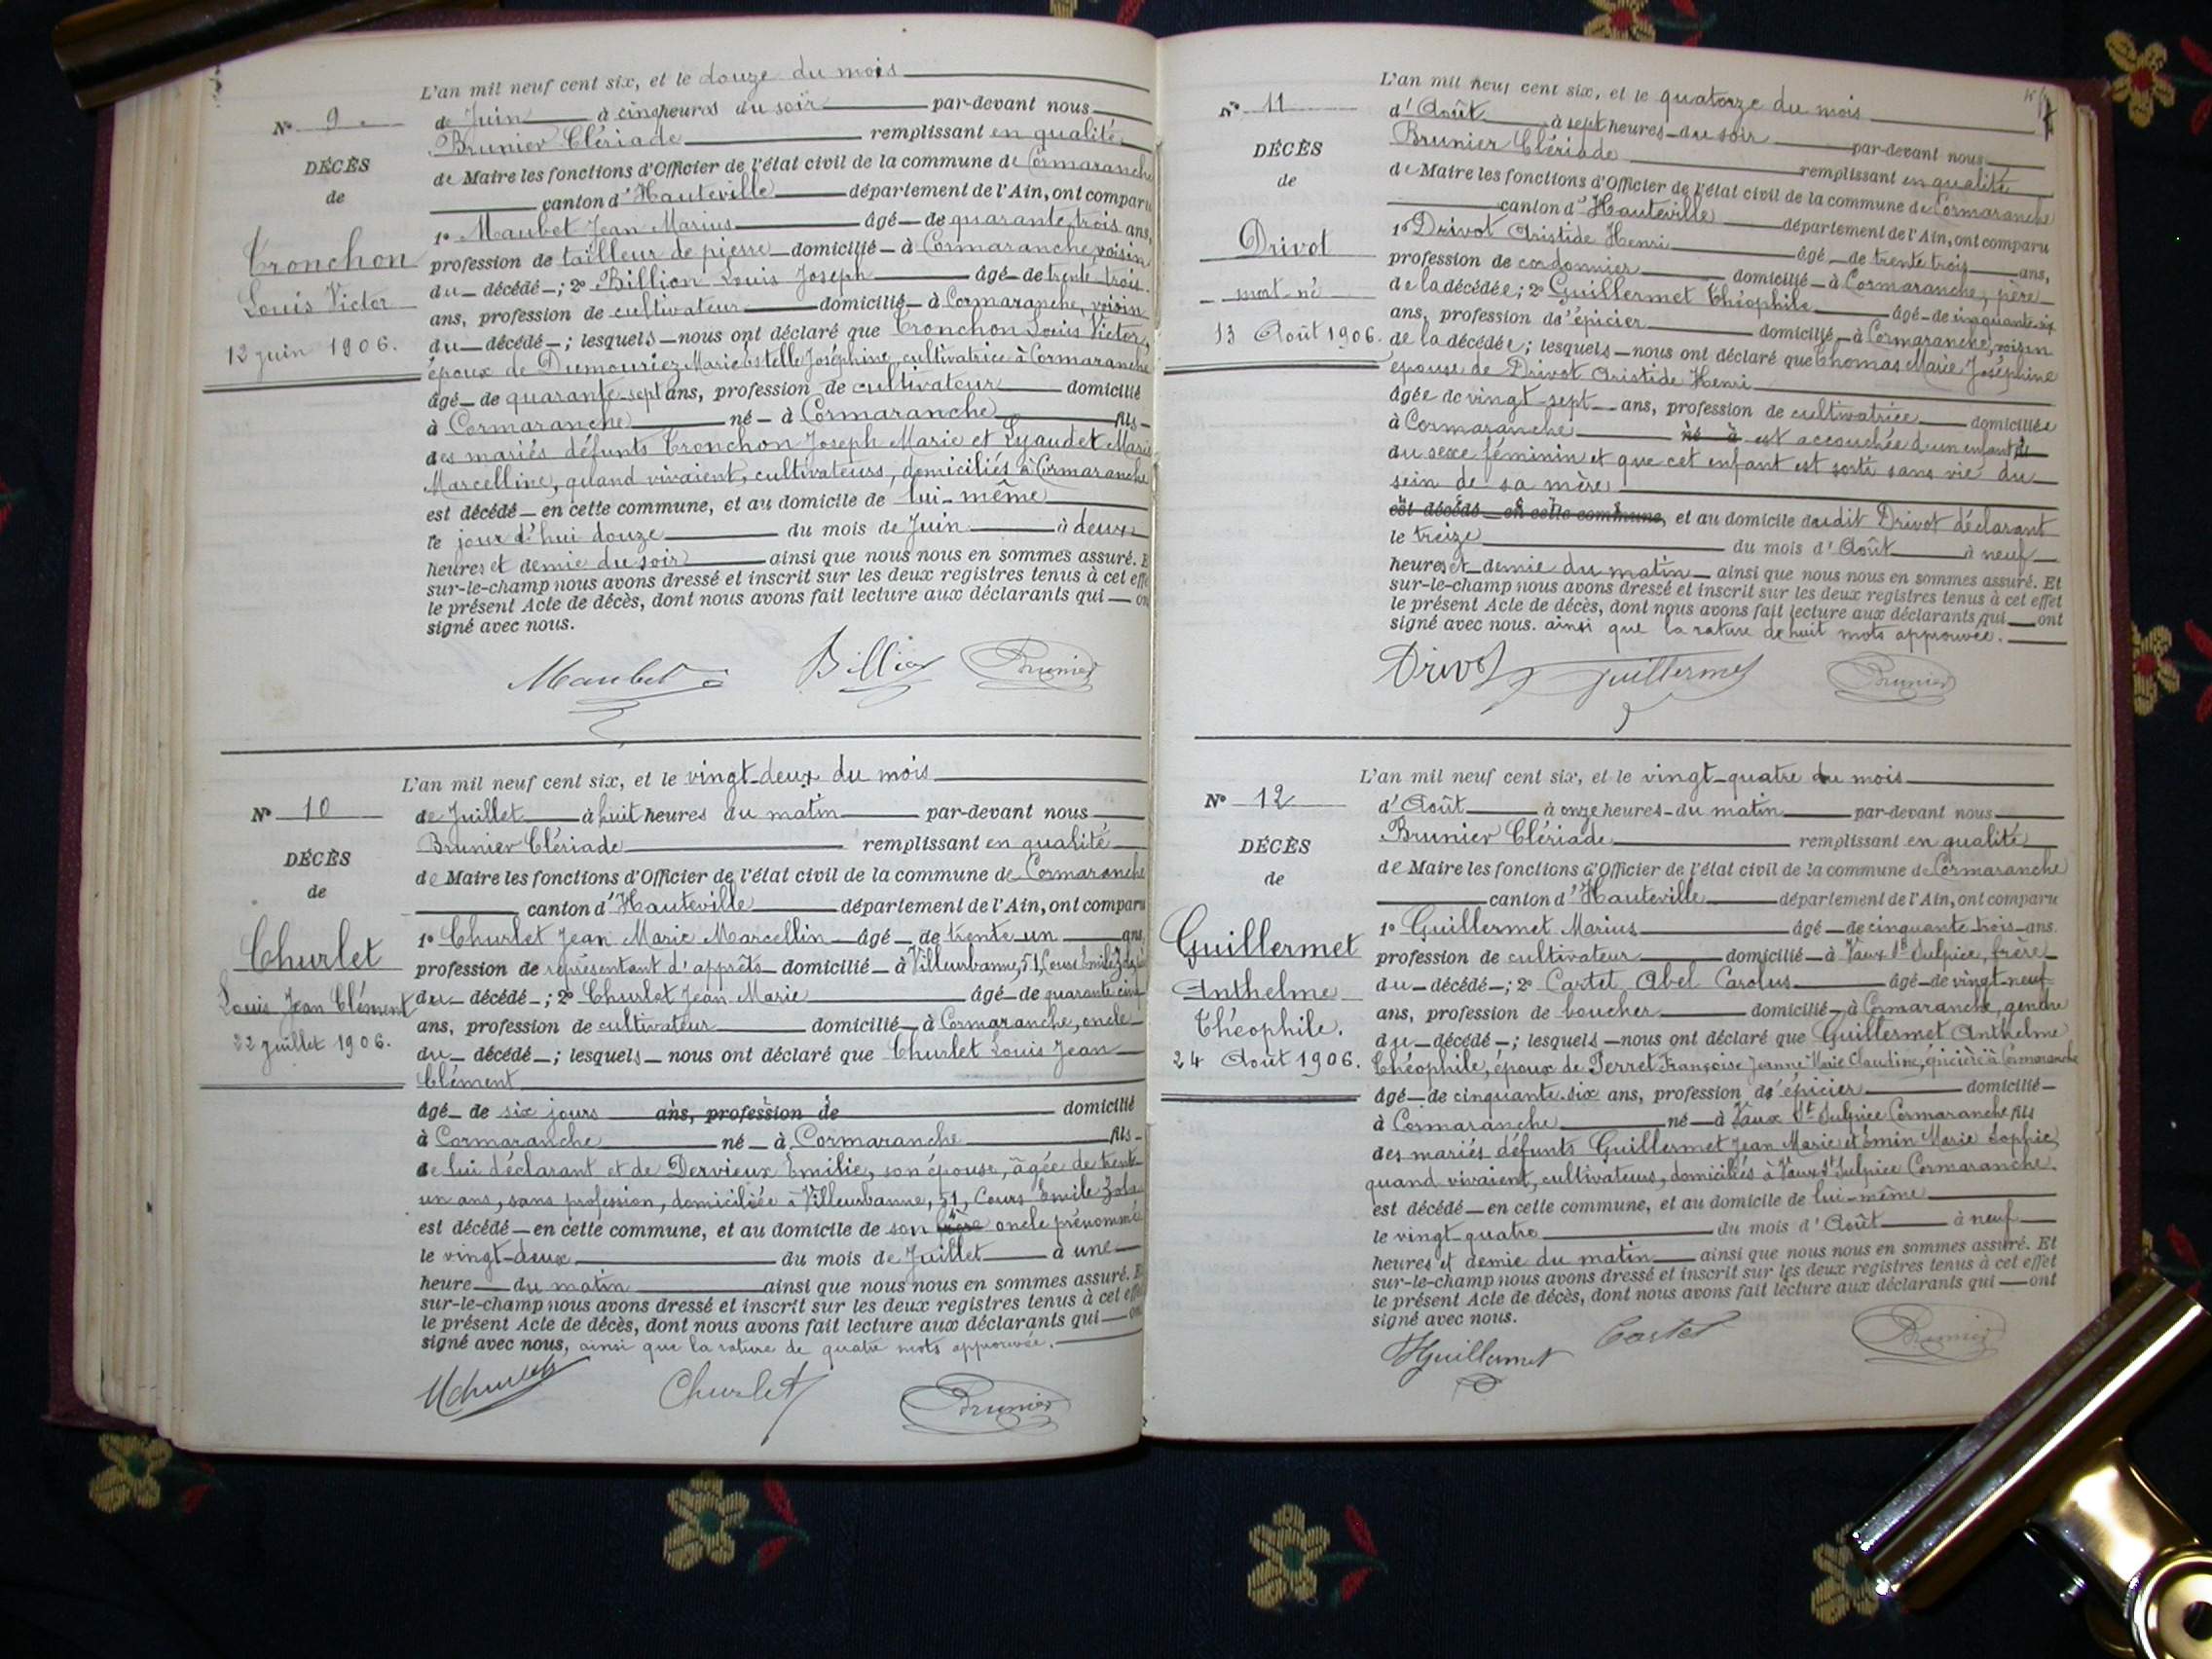 L'an mil neuf cent six, et le douze du mois
N° 9
de Juin à cinq heures du soir par-devant nous
Brunier Clériade remplissant en qualité
DÉCÈS
de Maire les fonctions d'Officier de l'état civil de la commune de Cormaranche
de
canton d'Hauteville département de l'Ain, ont comparu
1° Maubet Jean Marius âgé de quarante trois ans,
Tronchon
profession de tailleur de pierre domicilié à Cormaranche, voisin
du décédé ; 2° Billion Louis Joseph âgé de trente-trois
Louis Victor
ans, profession de cultivateur domicilié à Cormaranche, voisin
12 juin 1906.
du décédé ; lesquels nous ont déclaré que Tronchon Louis Victor,
époux de Dumouriez Marie Estelle Joséphine, cultivatrice à Cormaranche
âgé de quarante-sept ans, profession de cultivateur domicilié
à Cormaranche né à Cormaranche fils
des mariés défunts Tronchon Joseph Marie et Lyaudet Marie
Marcelline, quand vivaient, cultivateurs, domiciliés à Cormaranche
est décédé en cette commune, et au domicile de lui-même
le jour d'hui douze du mois de Juin à deux
heures et demie du soir ainsi que nous nous en sommes assuré. E
sur-le-champ nous avons dressé et inscrit sur les deux registres tenus à cet effe
le présent Acte de décès, dont nous avons fait lecture aux déclarants qui on
signé avec nous.
Maubet Billion Brunier
L'an mil neuf cent six, et le vingt-deux du mois
N° 10
de Juillet à huit heures du matin par-devant nous
Brunier Clériade remplissant en qualité
DÉCÈS
de Maire les fonctions d'Officier de l'état civil de la commune de Cormaranche
de
canton d'Hauteville département de l'Ain, ont comparu
1° Churlet Jean Marie Marcellin âgé de trente-un ans,
Churlet
profession de représentant d'apprêts domicilié à Villeurbanne, 51, Cours Emile Zola, père
Louis Jean Clément
du décédé ; 2° Churlet Jean Marie âgé de quarante cinq
ans, profession de cultivateur domicilié à Cormaranche, oncle
22 juillet 1906.
du décédé ; lesquels nous ont déclaré que Churlet Louis Jean
Clément
âgé de six jours ans, profession de domicilié
à Cormaranche né à Cormaranche fils
de lui déclarant et de Dervieux Emilie, son épouse, âgée de trente
un ans, sans profession, domiciliée à Villeurbanne, 51, Cours Emile Zola
est décédé en cette commune, et au domicile de son oncle prénommé
le vingt-deux du mois de Juillet à une
heure du matin ainsi que nous nous en sommes assuré. E
sur-le-champ nous avons dressé et inscrit sur les deux registres tenus à cet effe
le présent Acte de décès, dont nous avons fait lecture aux déclarants qui on
signé avec nous, ainsi que la rature de quatre mots approuvée.
Churlet Brunier
L'an mil neuf cent six, et le quatorze du mois
N° 11
d'Août à sept heures du soir par-devant nous
Brunier Clériade remplissant en qualité
DÉCÈS
de Maire les fonctions d'Officier de l'état civil de la commune de Cormaranche
de
canton d'Hauteville département de l'Ain, ont comparu
1° Drivot Aristide Henri âgé de trente trois ans,
Drivot
profession de cordonnier domicilié à Cormaranche, père
mort-né
de la décédée ; 2° Guillermet Théophile âgé de cinquante-six
ans, profession d'épicier domicilié à Cormaranche, voisin
13 Août 1906.
de la décédée ; lesquels nous ont déclaré que Thomas Marie Joséphine
épouse de Drivot Aristide Henri
âgée de vingt-sept ans, profession de cultivatrice domiciliée
à Cormaranche né à est accouchée d'un enfant
du sexe féminin et que cet enfant est sorti sans vie du
sein de sa mère
est décédé en cette commune, et au domicile dudit Drivot déclarant
le treize du mois d'Août à neuf
heures et demie du matin ainsi que nous nous en sommes assuré. Et
sur-le-champ nous avons dressé et inscrit sur les deux registres tenus à cet effet
le présent Acte de décès, dont nous avons fait lecture aux déclarants qui ont
signé avec nous. ainsi que la rature de huit mots approuvée.
Drivot Guillermet Brunier
L'an mil neuf cent six, et le vingt-quatre du mois
N° 12
d'Août à onze heures du matin par-devant nous
Brunier Clériade remplissant en qualité
DÉCÈS
de Maire les fonctions d'Officier de l'état civil de la commune de Cormaranche
de
canton d'Hauteville département de l'Ain, ont comparu
1° Guillermet Marius âgé de cinquante-trois ans.
Guillermet
profession de cultivateur domicilié à Vaux St Sulpice, frère
Anthelme
du décédé ; 2° Cartet Abel Carolus âgé de vingt-neuf
ans, profession de boucher domicilié à Cormaranche, gendre
Théophile.
du décédé ; lesquels nous ont déclaré que Guillermet Anthelme
24 Août 1906.
Théophile, époux de Perret Françoise Jeanne Marie Claudine, épicière à Cormaranche
âgé de cinquante-six ans, profession d'épicier domicilié
à Cormaranche né à Vaux St Sulpice Cormaranche fils
des mariés défunts Guillermet Jean Marie et Emin Marie Sophie,
quand vivaient, cultivateurs, domiciliés à Vaux St Sulpice Cormaranche.
est décédé en cette commune, et au domicile de lui-même
le vingt-quatre du mois d'Août à neuf
heures et demie du matin ainsi que nous nous en sommes assuré. Et
sur-le-champ nous avons dressé et inscrit sur les deux registres tenus à cet effet
le présent Acte de décès, dont nous avons fait lecture aux déclarants qui ont
signé avec nous.
Guillermet Cartet Brunier